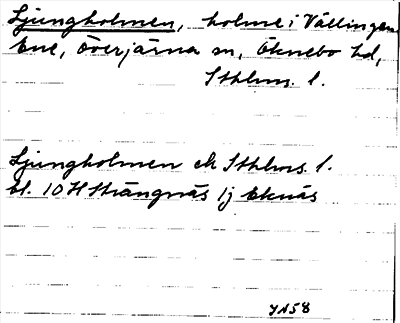 Ljungholmen, holme i Vällingen
Ene, Överjärna sn, Öknebo hd,
Sthlms l.
Ljungholmen ek Sthlms l.
bl. 10 H Strängnäs 1j Eknäs
JA58